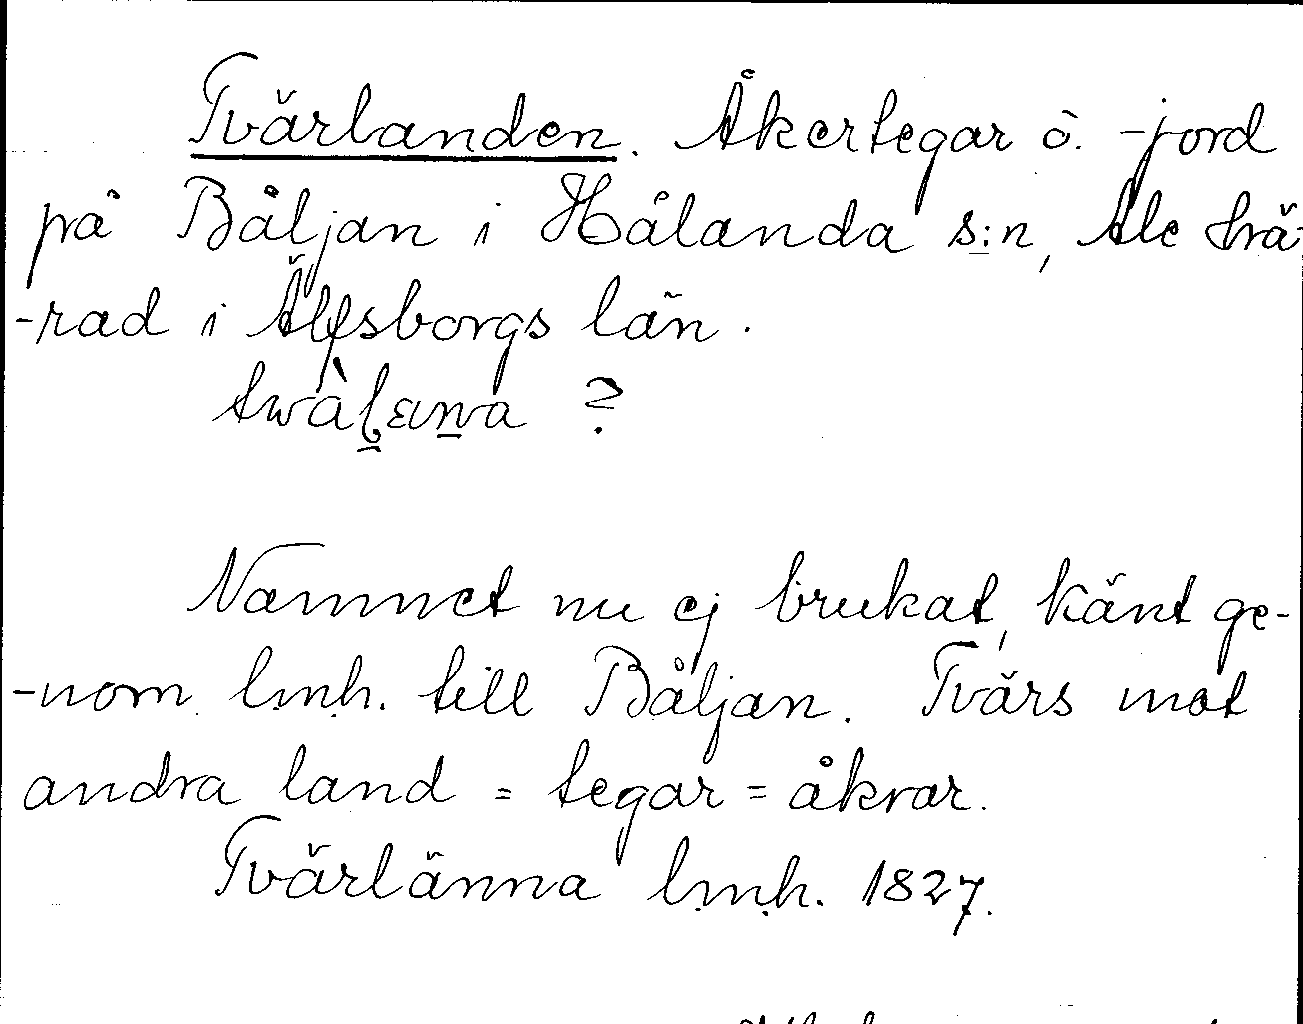 Tvärlanden. Åkertegar o. -jord
på Båljan i Hålanda s:n, Ale hä-
-rad i Älfsborgs län.
?
Namnet nu ej brukat, känt ge-
-nom lmh. till Båljan. Tvärs mot
andra land = tegar = åkrar.
Tvärlänna lmh. 1827.